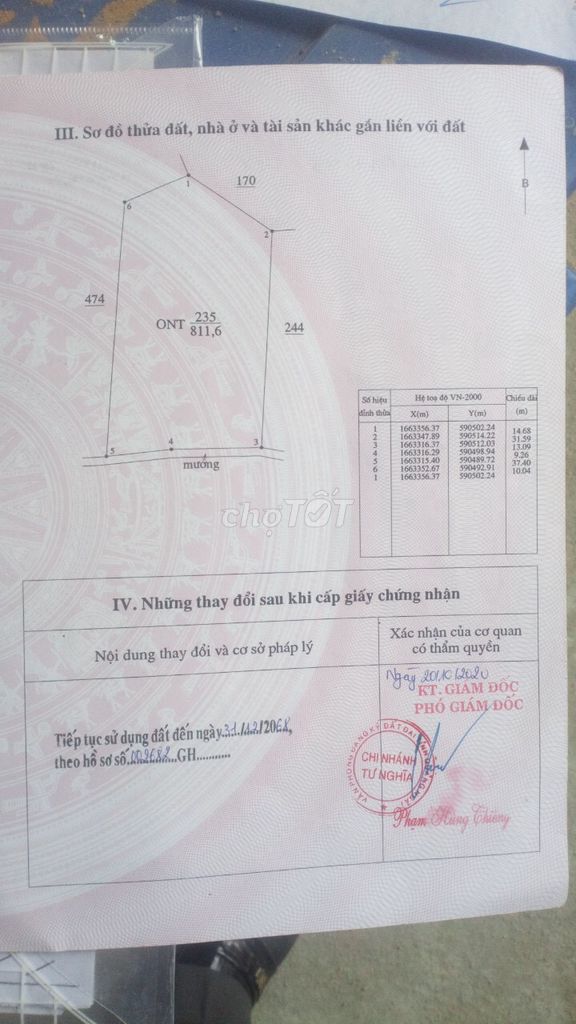 III. Sơ đồ thửa đất, nhà ở và tài sản khác gắn liền với đất
B
1
170
6
2
474
ONT 235
811,6
244
5
4
3
mương
Số hiệu đỉnh thửa
Hệ toạ độ VN-2000
Chiều dài (m)
X(m) Y(m)
1 1663356.37 590502.24
14.68
2 1663347.89 590514.22
31.59
3 1663316.37 590512.03
13.09
4 1663316.29 590498.94
9.26
5 1663315.40 590489.72
37.40
6 1663352.67 590492.91
10.04
1 1663356.37 590502.24
chợTỐT
IV. Những thay đổi sau khi cấp giấy chứng nhận
Nội dung thay đổi và cơ sở pháp lý
Xác nhận của cơ quan
có thẩm quyền
Ngày 20/10/2020
KT. GIÁM ĐỐC
PHÓ GIÁM ĐỐC
Tiếp tục sử dụng đất đến ngày 31/12/206
theo hồ sơ số GH
VĂN PHÒNG ĐĂNG KÝ ĐẤT ĐAI TỈNH QUẢNG NGÃI
CHI NHÁNH
TƯ NGHĨA
Phạm Hùng